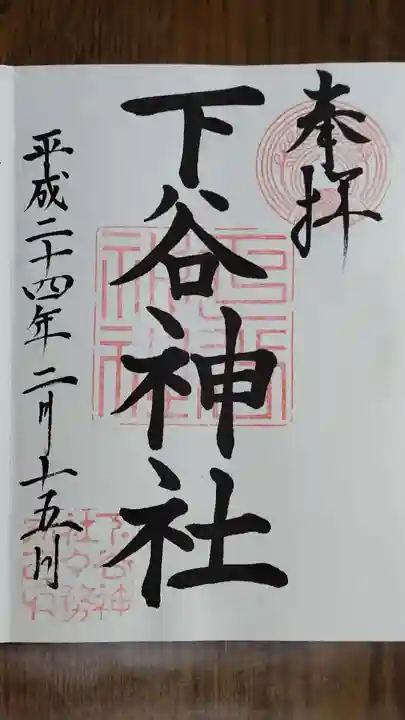 奉拝
下谷神社
平成二十四年二月十五日
下谷神社